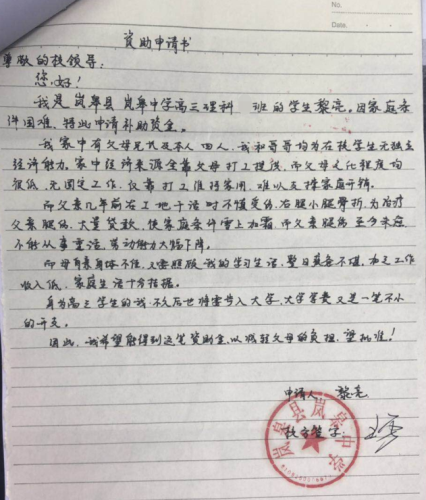 No.
Date.
资助申请书
尊敬的校领导:
您好!
我是岚皋县岚皋中学高三理科 班的学生黎亮。因家庭条
件困难,特此申请补助资金。
我家中有父母兄我及本人四人,我和哥哥均为在校学生无独立
经济能力。家中经济来源全靠父母打工提供,而父母文化程度均
很低,无固定工作,仅靠打工维持家用,难以支撑家庭开销。
而父亲几年前在工地干活时不慎受伤,右腿小腿骨折,为治疗
父亲腿伤,大量贷款,使家庭条件雪上加霜,而父亲腿伤至今未痊
不能从事重活,劳动能力大幅下降。
而母亲身体不佳,又要照顾我的学习生活,整日疲惫不堪,加之工作
收入低,家庭生活十分拮据。
身为高三学生的我,不久后也将要步入大学,大学学费又是一笔不小
的开支。
因此,我希望能得到这笔资助金,以减轻父母的负担,望批准!
申请人 黎亮
校方签字:
岚皋县岚皋中学